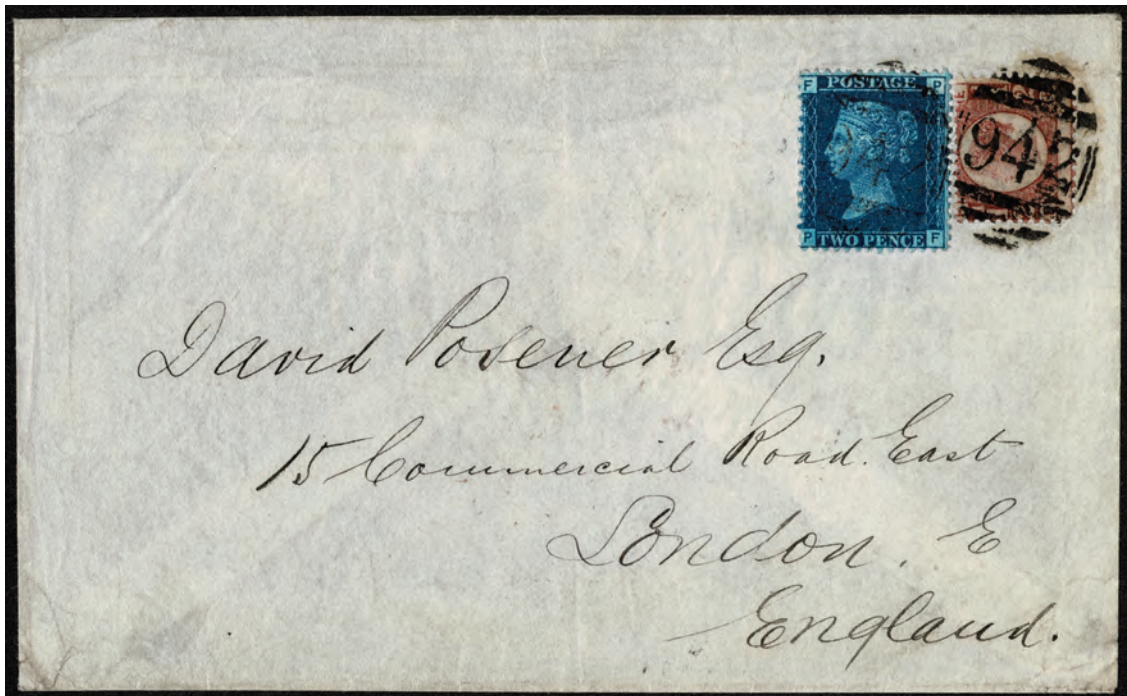 F POSTAGE P
P TWO PENCE F
94
David Posener Esq.
15 Commercial Road. East
London. E
England.